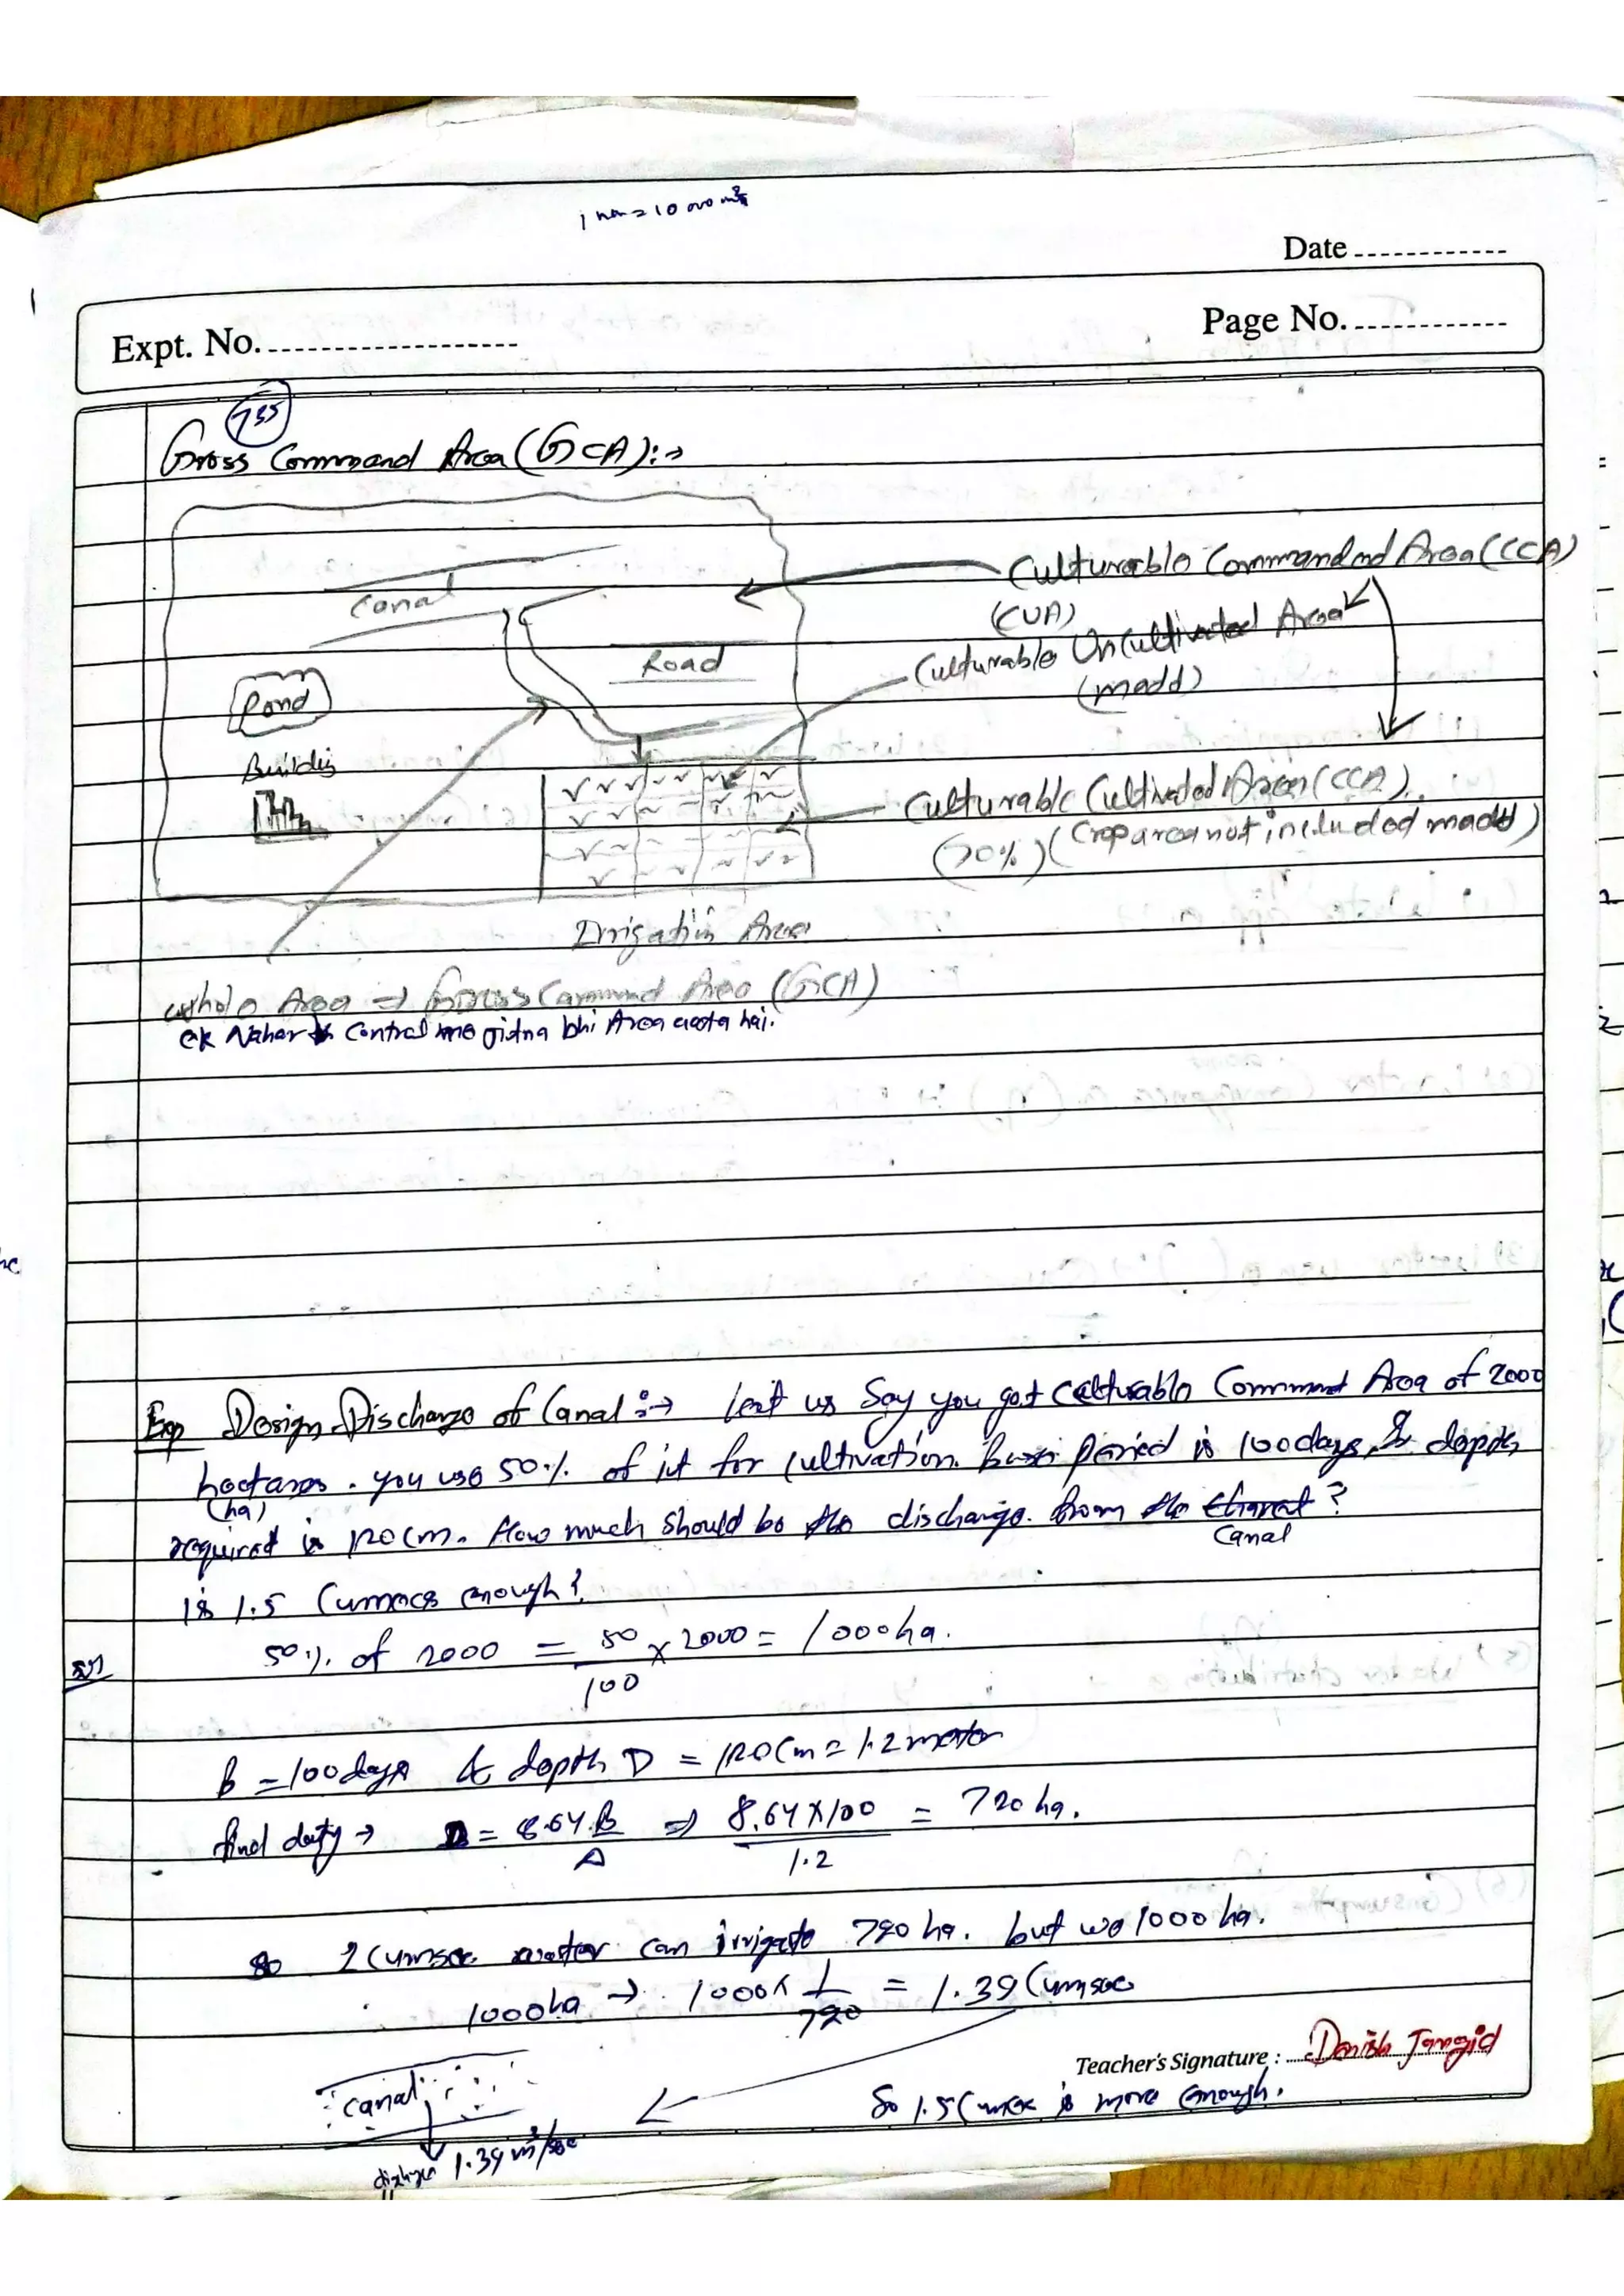 1 ha = 10000 m²
Date
Expt. No.
Page No.
735
Gross Command Area (GCA):→
Canal
Culturable Commanded Area (CCA)
(CUA)
Culturable UnCultivated Area
(madd)
Road
Pond
Building
Culturable Cultivated Area (CCA).
(70%) (Crop area not included madd)
Irrigation Area
Whole Area ⇒ Gross Command Area (GCA)
ek Naher k Control me jitna bhi Area aata hai.
Exp Design Discharge of Canal :→ let us Say you got Culturable Command Area of 2000
hectares. you use 50% of it for Cultivation. Base period is 100 days, & depth
(ha)
required is 120 Cm. How much should be the discharge from the Canal?
is 1.5 Cumecs enough?
Sol
50% of 2000 = 50/100 × 2000 = 1000 ha.
B = 100 days & depth D = 120 Cm = 1.2 meter
find duty → D = 8.64 B/Δ ⇒ 8.64 X 100/1.2 = 720 ha.
So 1 Cumsec water can irrigate 720 ha. but we 1000 ha.
1000 ha → 1000 × 1/720 = 1.39 Cumsec
Teacher's Signature : Danish Jangid
So 1.5 Cumec is more enough.
Canal
1.39 m³/sec